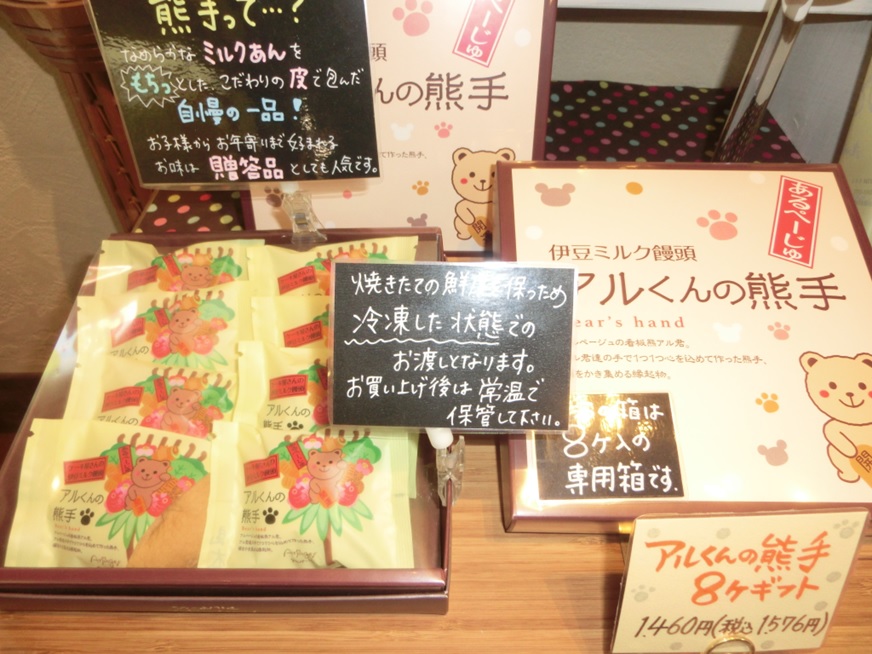 熊手って…?
なめらかな ミルクあんを
もちっとした、こだわりの皮で包んだ
自慢の一品!
お子様からお年寄りまで好まれる
お味は 贈答品としても人気です。
くんの熊手
べーじゅ
焼きたての鮮度を保つため
冷凍した状態での
お渡しとなります。
お買い上げ後は常温で
保管して下さい。
あるべーじゅ
伊豆ミルク饅頭
アルくんの熊手
ear's hand
ページュの看板熊アル君。
ル君達の手で1つ1つ心を込めて作った熊手。
をかき集める縁起物。
の箱は
8ケ入の
専用箱です.
アルくんの
熊手
アルくんの
熊手
アルくんの
熊手
アルくんの熊手
8ケギフト
1460円(税込1576円)